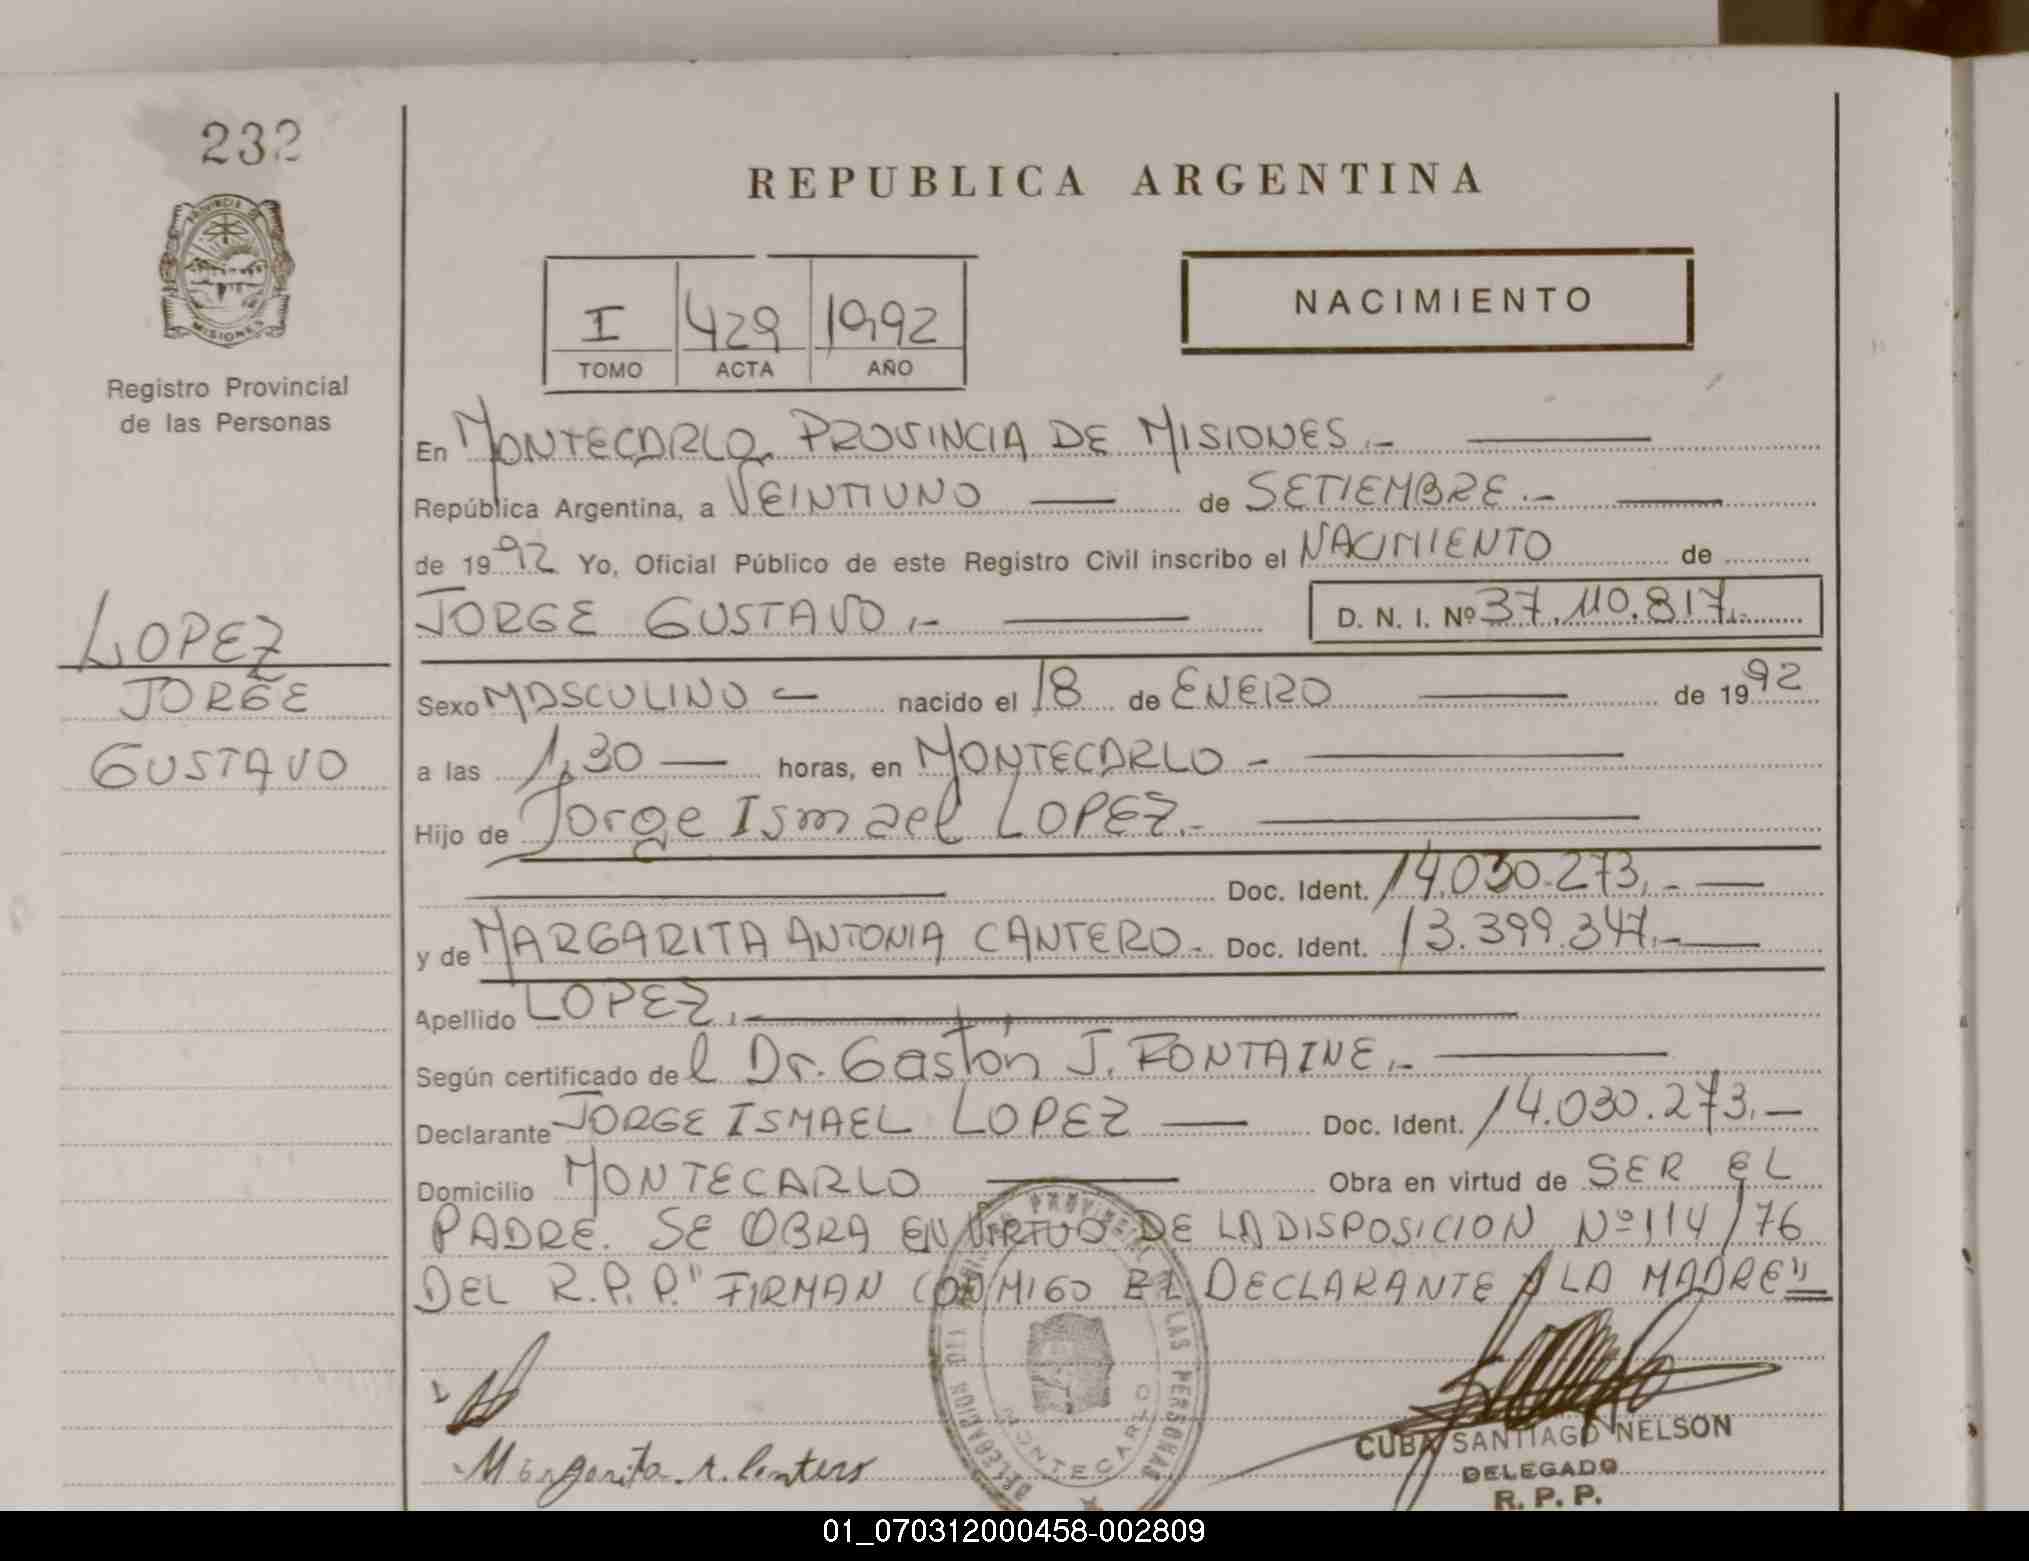 232
PROVINCIA DE
MISIONES
Registro Provincial
de las Personas
LOPEZ
JORGE
GUSTAVO
REPUBLICA ARGENTINA
I 429 1992
TOMO ACTA AÑO
NACIMIENTO
En MONTECARLO, PROVINCIA DE MISIONES.-
República Argentina, a VEINTIUNO de SETIEMBRE.-
de 1992 Yo, Oficial Público de este Registro Civil inscribo el NACIMIENTO de
JORGE GUSTAVO.- D. N. I. Nº 37.110.817.-
Sexo MASCULINO - nacido el 18 de ENERO de 1992
a las 1,30 horas, en MONTECARLO -
Hijo de Jorge Ismael LOPEZ.-
Doc. Ident. 14.030.273.-
y de MARGARITA ANTONIA CANTERO.- Doc. Ident. 13.399.347.-
Apellido LOPEZ.
Según certificado del Dr. Gastón J. FONTAINE.-
Declarante JORGE ISMAEL LOPEZ Doc. Ident. 14.030.273.-
Domicilio MONTECARLO Obra en virtud de SER EL
PADRE. SE OBRA EN VIRTUD DE LA DISPOSICION Nº 114/76
DEL R.P.P." FIRMAN CONMIGO EL DECLARANTE Y LA MADRE"
PROVINCIAL DE LAS PERSONAS
DELEGACION
MONTECARLO
Margarita A. Cantero
CUBA SANTIAGO NELSON
DELEGADO
R. P. P.
01_070312000458-002809